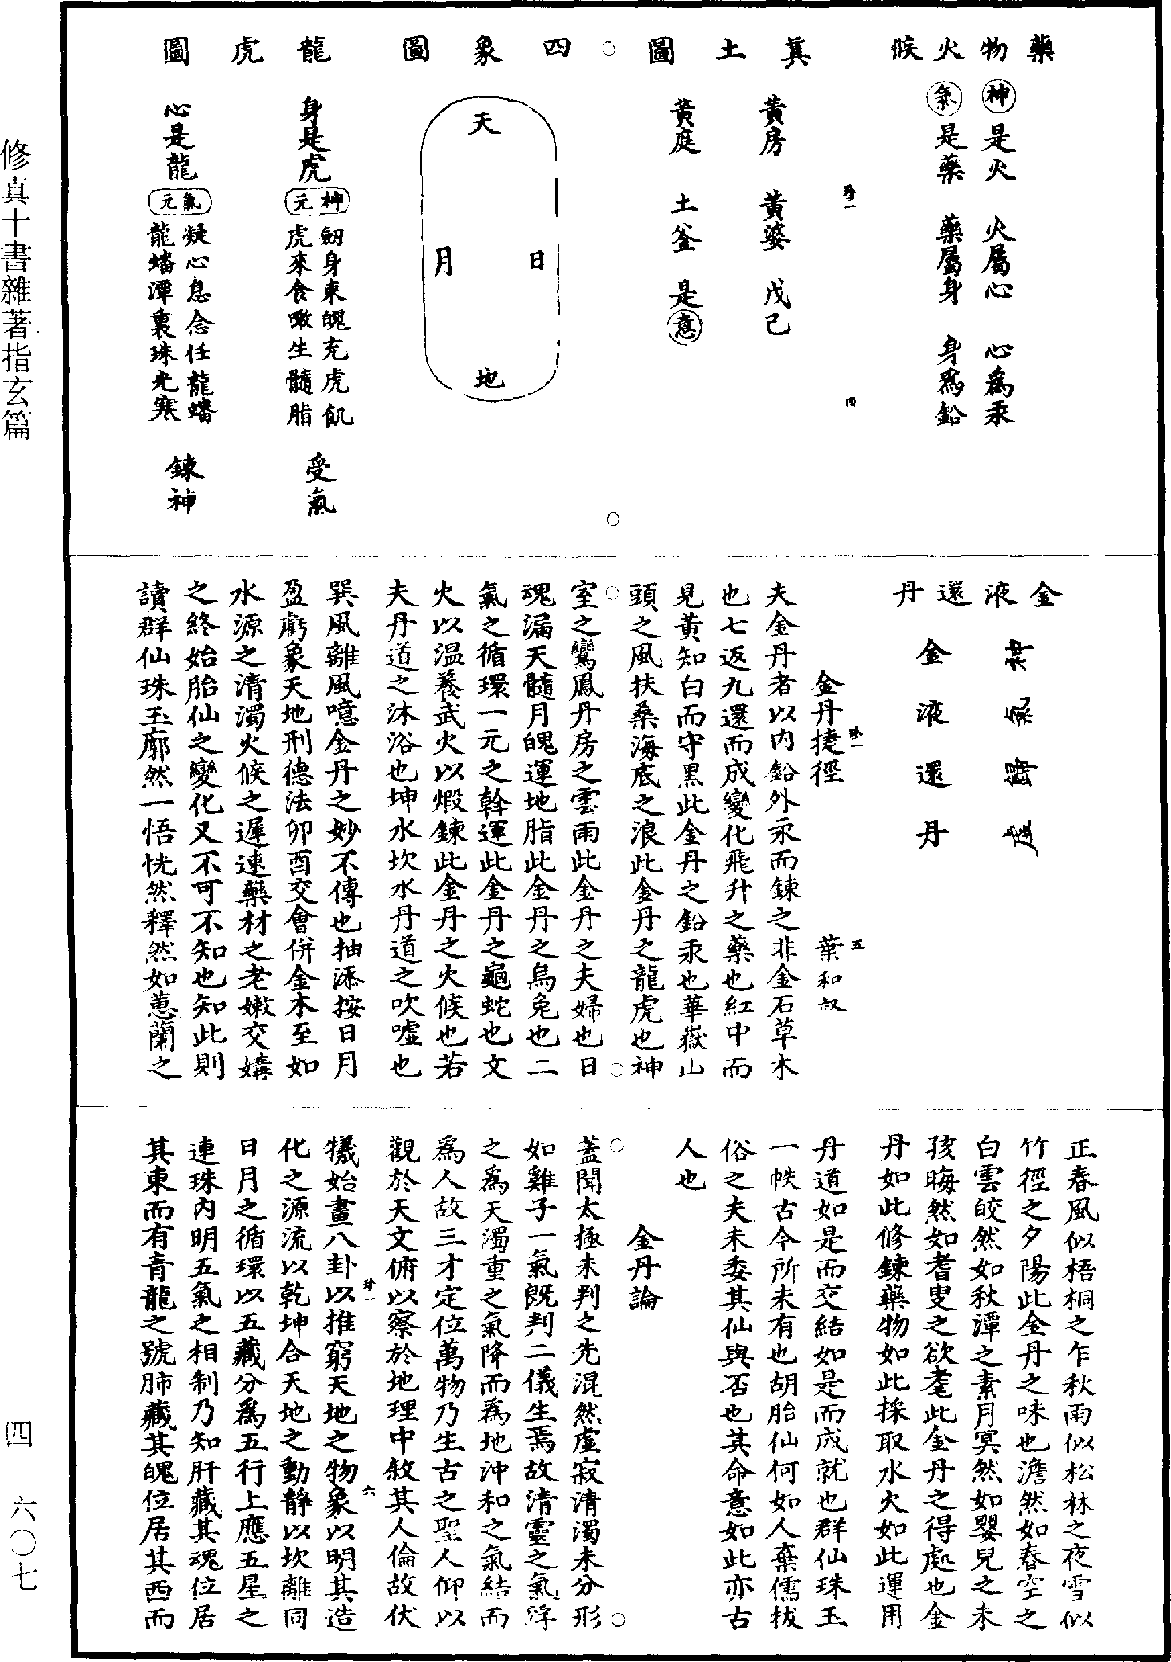 藥物火候
神是火 火屬心 心爲汞
氣是藥 藥屬身 身爲鉛
四
眞土圖
黃房 黃婆 戊己
黃庭 土釜 是意
四象圖
天
日
月
地
龍虎圖
身是虎 元神 劒身束魄充虎飢
虎來食噉生髓脂 受氣
心是龍 元氣 凝心息念任龍蟠
龍蟠潭裏珠光寒 鍊神
金液還丹
金液還丹
五
金丹捷徑 葉和叔
夫金丹者以内鉛外汞而鍊之非金石草木
也七返九還而成變化飛升之藥也紅中而
見黃知白而守黑此金丹之鉛汞也華嶽山
頭之風扶桑海底之浪此金丹之龍虎也神
室之鸞鳳丹房之雲雨此金丹之夫婦也日
魂漏天髓月魄運地脂此金丹之烏兔也二
氣之循環一元之斡運此金丹之龜蛇也文
火以温養武火以煅鍊此金丹之火候也若
夫丹道之沐浴也坤水坎水丹道之吹噓也
巽風離風噫金丹之妙不傳也抽添按日月
盈虧象天地刑德法卯酉交會併金木至如
水源之清濁火候之遲速藥材之老嫩交媾
之終始胎仙之變化又不可不知也知此則
讀群仙珠玉廓然一悟恍然釋然如蕙蘭之
正春風似梧桐之乍秋雨似松林之夜雪似
竹徑之夕陽此金丹之味也澹然如春空之
白雲皎然如秋潭之素月冥然如嬰兒之未
孩晦然如耆叟之欲耄此金丹之得處也金
丹如此修鍊藥物如此採取水火如此運用
丹道如是而交結如是而成就也群仙珠玉
一帙古今所未有也胡胎仙何如人棄儒拔
俗之夫未委其仙與否也其命意如此亦古
人也
金丹論
蓋聞太極未判之先混然虛寂清濁未分形
如雞子一氣旣判二儀生焉故清靈之氣浮
之爲天濁重之氣降而爲地沖和之氣結而
爲人故三才定位萬物乃生古之聖人仰以
觀於天文俯以察於地理中敘其人倫故伏
六
犧始畫八卦以推窮天地之物象以明其造
化之源流以乾坤合天地之動靜以坎離同
日月之循環以五藏分爲五行上應五星之
連珠内明五氣之相制乃知肝藏其魂位居
其東而有青龍之號肺藏其魄位居其西而
修真十書雜著指玄篇
四 六〇七